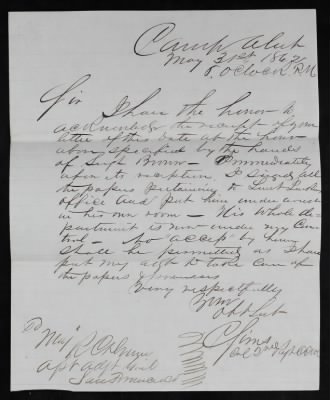 Camp Alert
May 31st 1862
8. Oclock. P.M
Sir I have the honor to
acknowledge the receipt of your
letter of this date at the hour
above specified by the hands
of Sergt Brown - Immediately
upon its reception, I seized all
the papers pertaining to Lieut
office and put him under arrest
in his own room - His whole de
partment is now under my Con
trol - No access by him
shall be permitted as I have
put my to take care of
the papers
Very respectfully
Your
Obt Svt
Sims
Col 2nd
To Maj R C Drum
Asst Adjt Genl
San Francisco